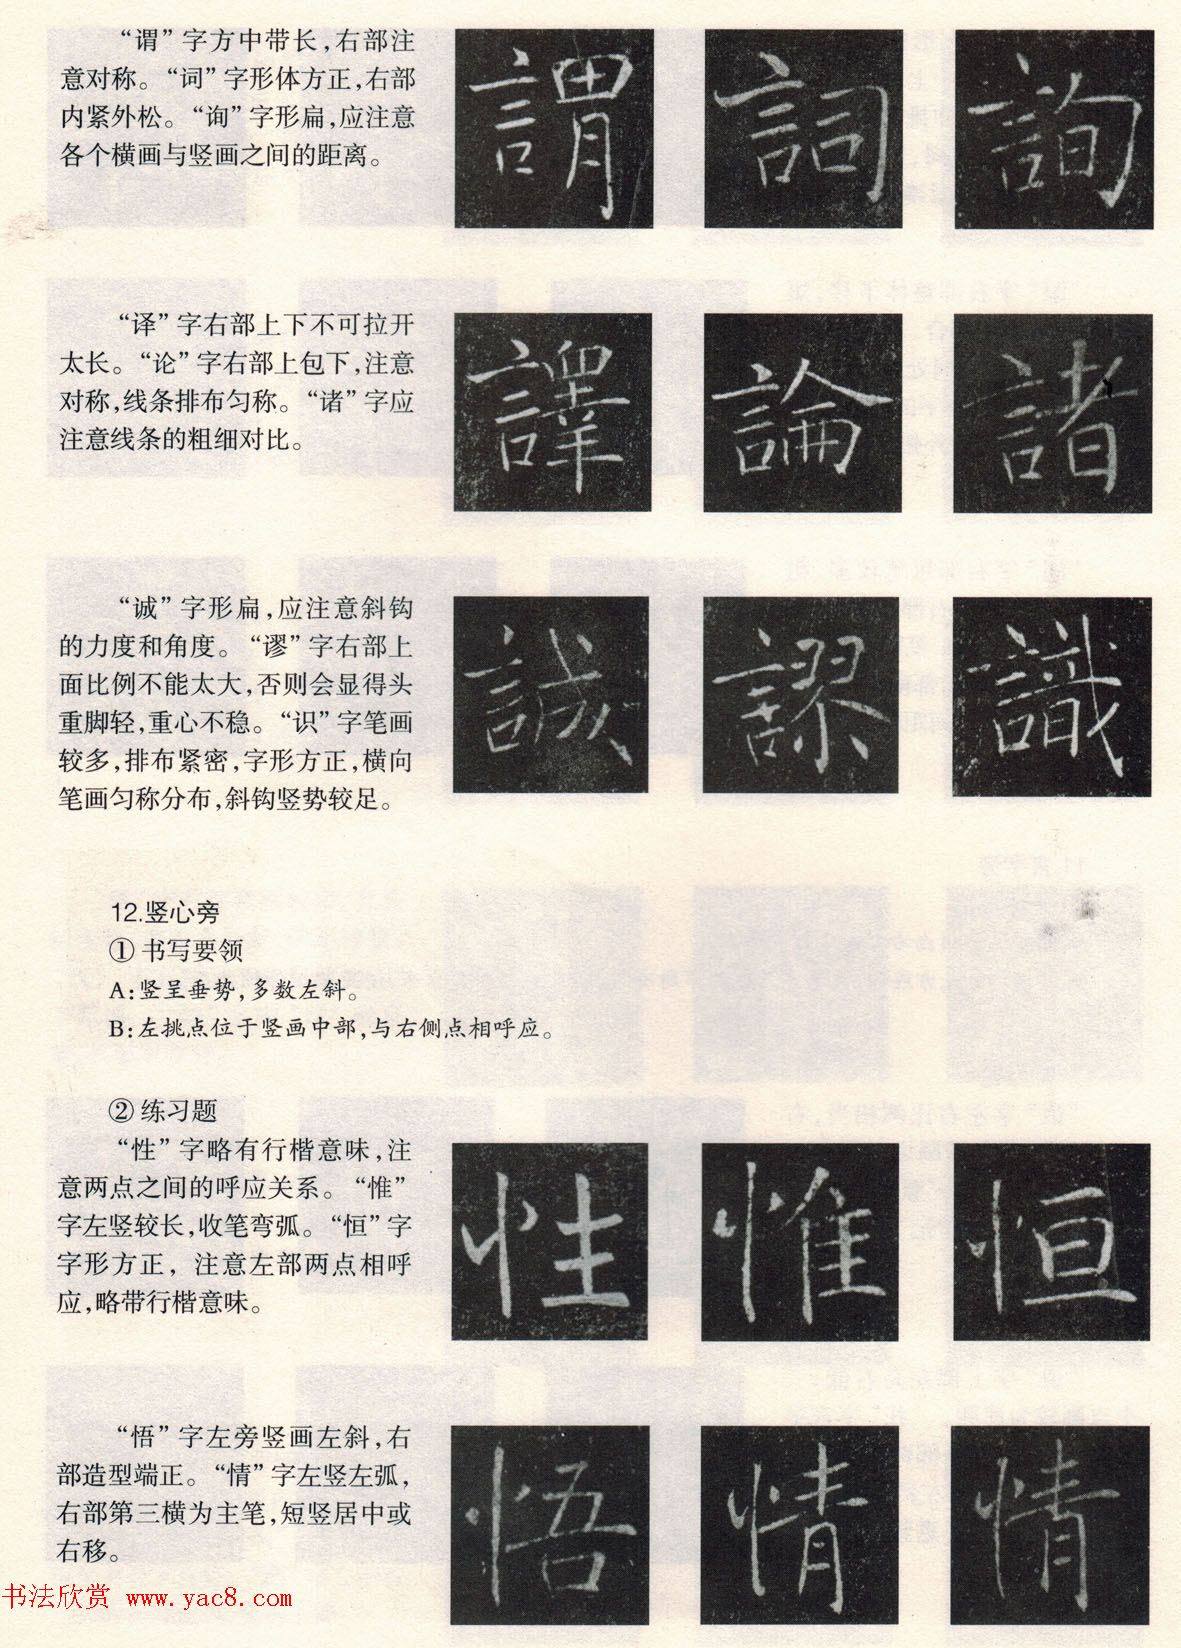 “谓”字方中带长,右部注
意对称。“词”字形体方正,右部
内紧外松。“询”字形扁,应注意
各个横画与竖画之间的距离。
謂 詞 詢
“译”字右部上下不可拉开
太长。“论”字右部上包下,注意
对称,线条排布匀称。“诸”字应
注意线条的粗细对比。
譯 論 諸
“诚”字形扁,应注意斜钩
的力度和角度。“谬”字右部上
面比例不能太大,否则会显得头
重脚轻,重心不稳。“识”字笔画
较多,排布紧密,字形方正,横向
笔画匀称分布,斜钩竖势较足。
誠 謬 識
12.竖心旁
① 书写要领
A:竖呈垂势,多数左斜。
B:左挑点位于竖画中部,与右侧点相呼应。
② 练习题
“性”字略有行楷意味,注
意两点之间的呼应关系。“惟”
字左竖较长,收笔弯弧。“恒”字
字形方正,注意左部两点相呼
应,略带行楷意味。
性 惟 恒
“悟”字左旁竖画左斜,右
部造型端正。“情”字左竖左弧,
右部第三横为主笔,短竖居中或
右移。
悟 情 情
书法欣赏 www.yac8.com